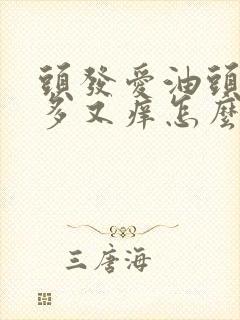 頭發愛油頭
多又癢怎麼
三唐海